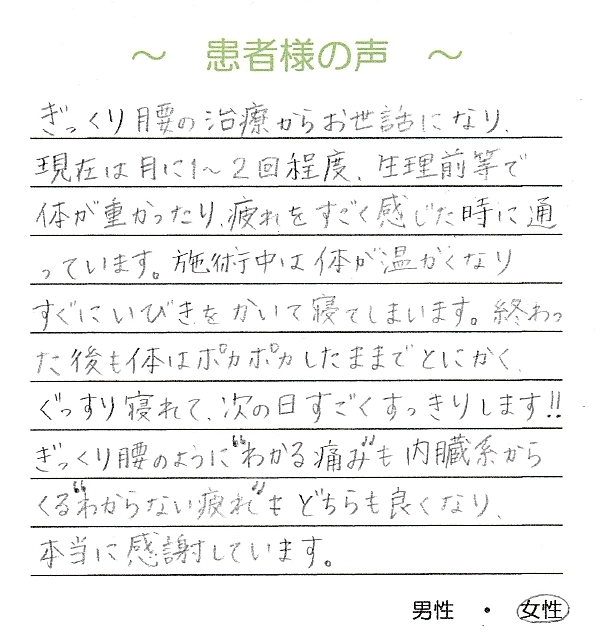 ～ 患者様の声 ～
ぎっくり腰の治療からお世話になり、
現在は月に1～2回程度、生理前等で
体が重かったり、疲れをすごく感じた時に通
っています。施術中は体が温かくなり
すぐにいびきをかいて寝てしまいます。終わっ
た後も体はポカポカしたままでとにかく、
ぐっすり寝れて、次の日すごくすっきりします!!
ぎっくり腰のように“わかる痛み”も内臓系から
くる“わからない疲れ”もどちらも良くなり、
本当に感謝しています。
男性 ・ 女性